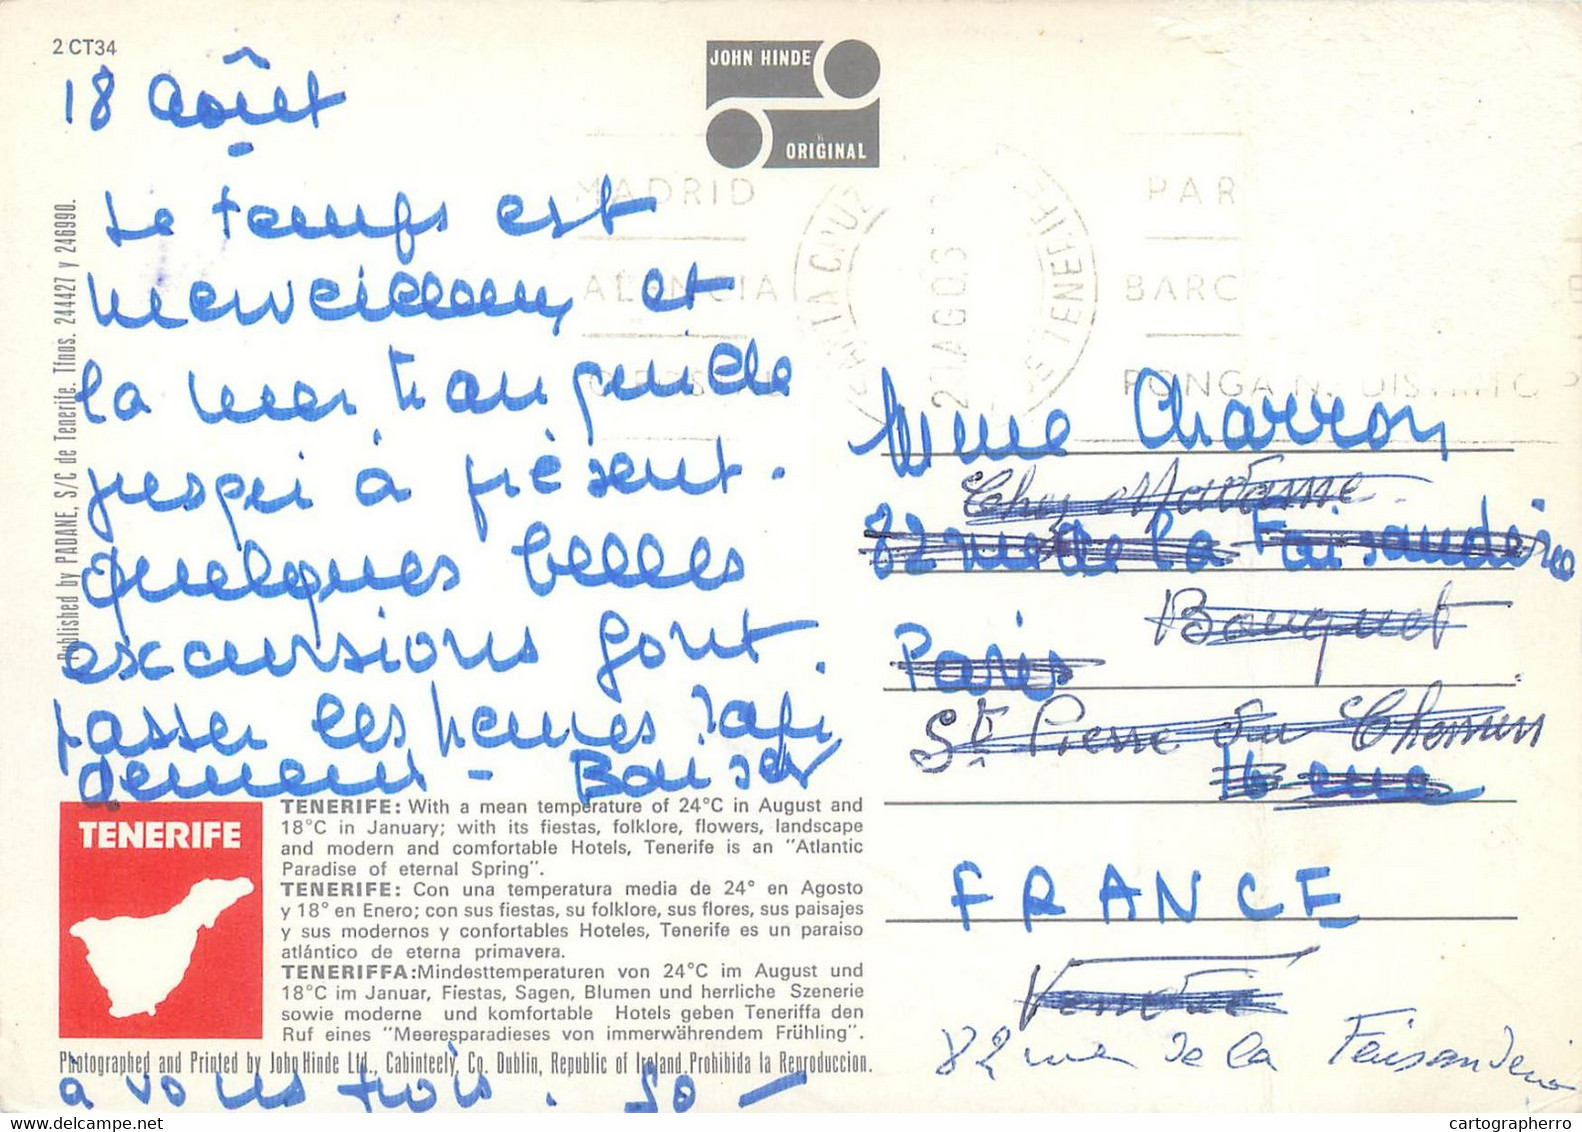 2 CT34
18 Août
JOHN HINDE
ORIGINAL
Le temps est
merveilleux et
la mer tranquille
jusqu'à présent.
quelques belles
excursions font
passer les heures rapi
dement - Baiser
à vous trois.
Published by PADANE, S/C de Tenerife. Tfnos. 244427 y 246990.
MADRID
ALENCIA
PAR
BARC
PONGA N. DISTRITO P
LA CRUZ
DE TENERIFE
AGO
Mme Charron
Chez Madame
82 rue de la Faisanderie
Bouquet
Paris
St Pierre du Chemin
16 eme
FRANCE
Vendée
82 rue de la Faisanderie
TENERIFE
TENERIFE: With a mean temperature of 24°C in August and
18°C in January; with its fiestas, folklore, flowers, landscape
and modern and comfortable Hotels, Tenerife is an "Atlantic
Paradise of eternal Spring".
TENERIFE: Con una temperatura media de 24° en Agosto
y 18° en Enero; con sus fiestas, su folklore, sus flores, sus paisajes
y sus modernos y confortables Hoteles, Tenerife es un paraiso
atlántico de eterna primavera.
TENERIFFA: Mindesttemperaturen von 24°C im August und
18°C im Januar, Fiestas, Sagen, Blumen und herrliche Szenerie
sowie moderne und komfortable Hotels geben Teneriffa den
Ruf eines "Meeresparadieses von immerwährendem Frühling".
Photographed and Printed by John Hinde Ltd., Cabinteely, Co. Dublin, Republic of Ireland. Prohibida la Reproduccion.
cartographerro